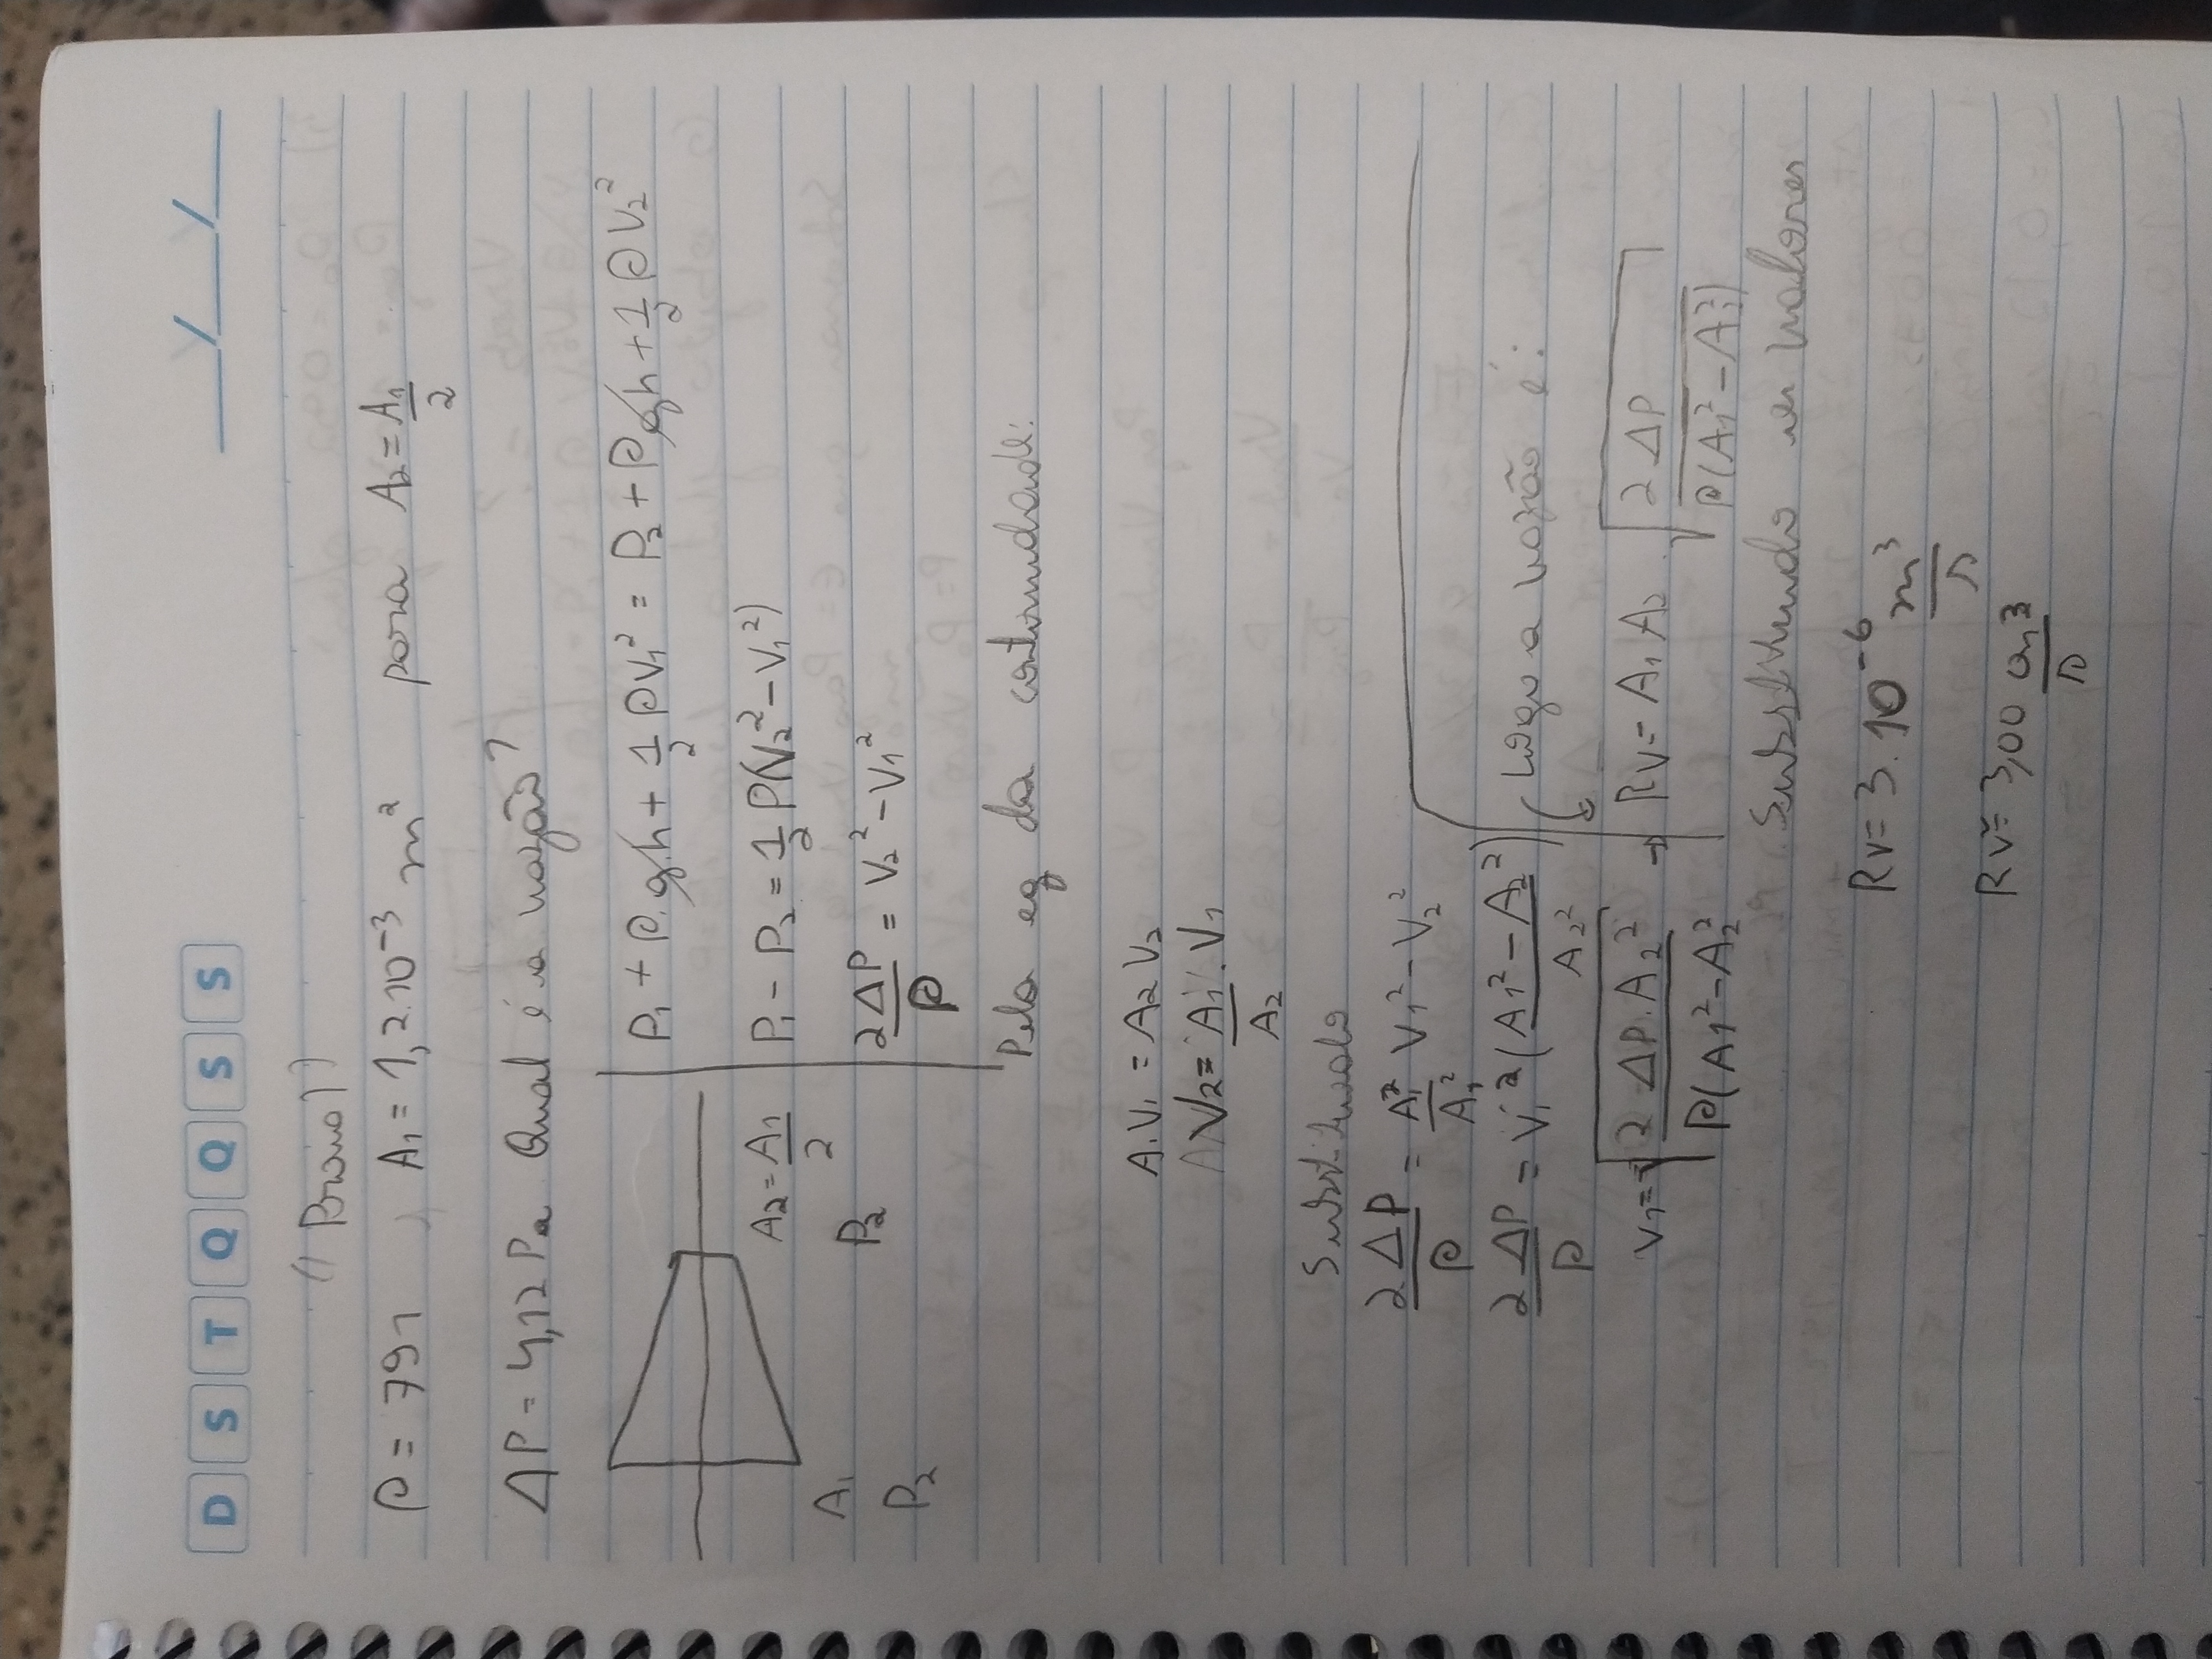 D S T Q Q S S __/__/__
ρ = 791 A₁ = 1,2.10⁻³ m² para A₂ = A₁/2
ΔP = 4,12 Pa Qual é a vazão?
P₁ + ρ.g.h + 1/2 ρV₁² = P₂ + ρgh + 1/2 ρV₂²
A₂ = A₁/2
P₁ - P₂ = 1/2 ρ(V₂² - V₁²)
A₁
P₂
P₂
2ΔP/ρ = V₂² - V₁²
Pela eq da continuidade:
A₁V₁ = A₂V₂
V₂ = A₁/A₂ . V₁
Substituindo
2ΔP/ρ = A₁²/A₁² V₁² - V₂²
2ΔP/ρ = V₁² (A₁² - A₂²/A₂²)
Logo a vazão é:
V₁ = √(2 ΔP.A₂²/ρ(A₁² - A₂²) → RV = A₁ A₂ . √(2 ΔP/ρ(A₁² - A₂²))
Substituindo os valores
RV = 3.10⁻⁶ m³/s
RV = 3,00 cm³/s